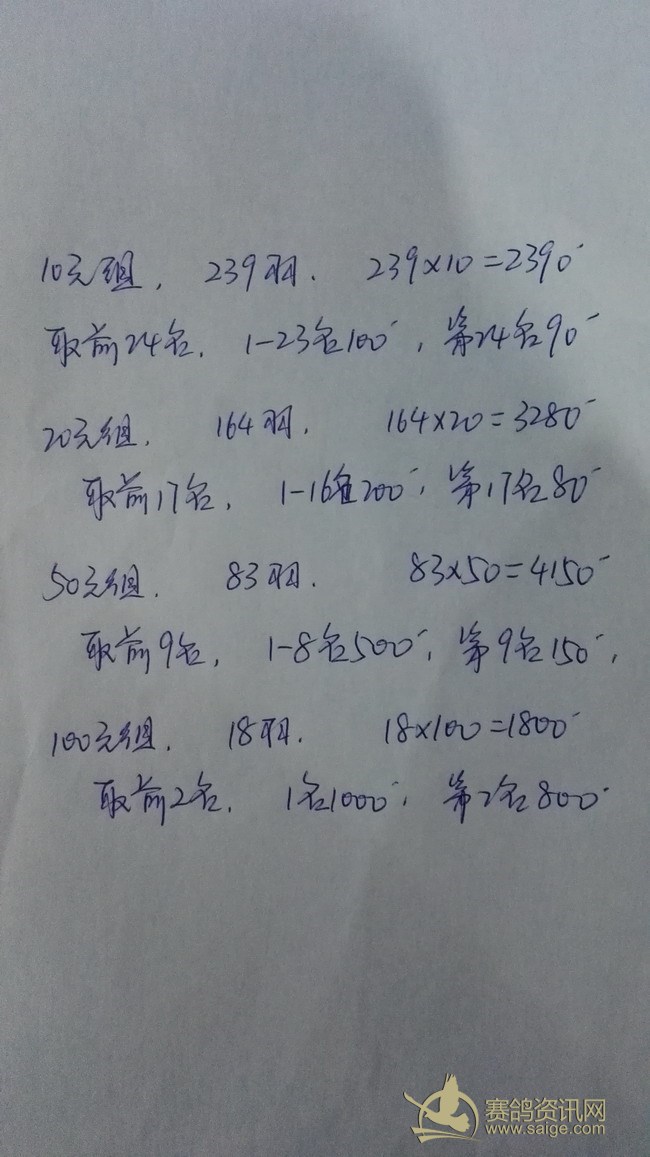 10元组, 239羽. 239×10=2390-
取前24名, 1-23名100-, 第24名90-
20元组, 164羽. 164×20=3280-
取前17名, 1-16名200-, 第17名80-
50元组. 83羽. 83×50=4150-
取前9名, 1-8名500-, 第9名150-,
100元组. 18羽. 18×100=1800-
取前2名, 1名1000-, 第2名800-
赛鸽资讯网
www.saige.com